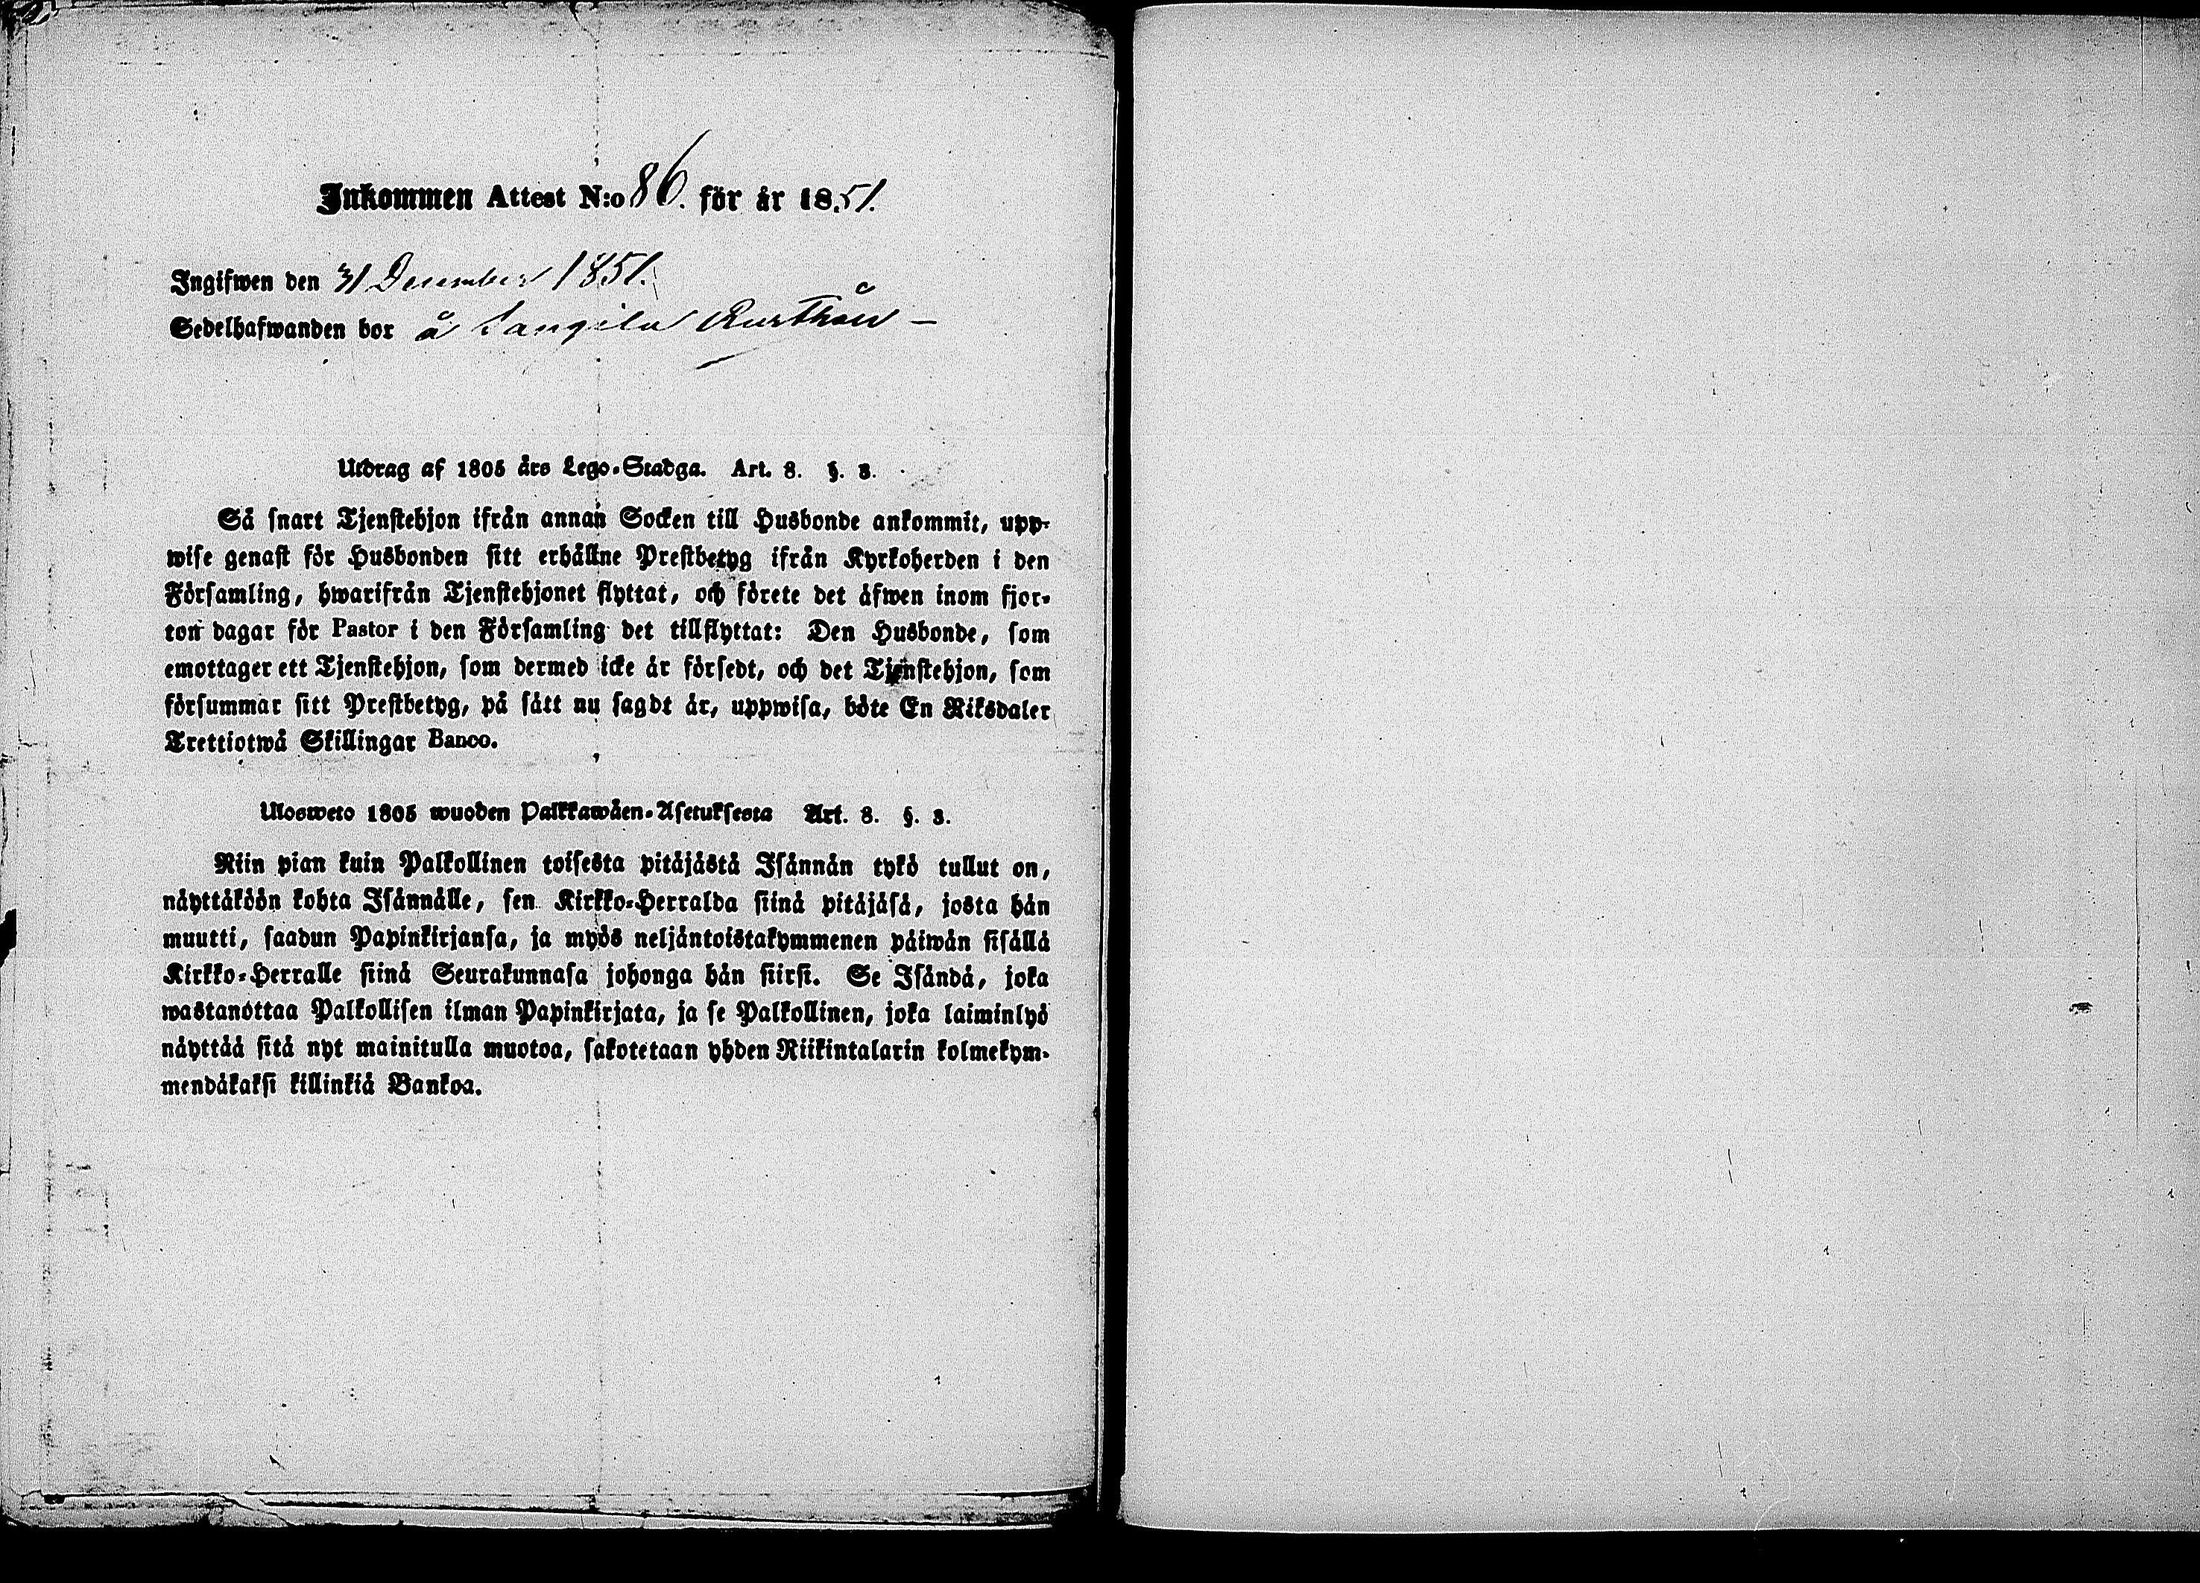 Inkommen Attest N:o 86. för år 1851.
Ingifwen den 31 December 1851.
Sedelhafwanden bor å
Utdrag af 1805 års Lego-Stadga. Art. 8. §. 3.
Så snart Tjenstehjon ifrån annan Socken till Husbonde ankommit, upp-
wise genast för Husbonden sitt erhållne Prestbetyg ifrån Kyrkoherden i den
Församling, hwarifrån Tjenstehjonet flyttat, och förete det äfwen inom fjor-
ton dagar för Pastor i den Församling det tillflyttat: Den Husbonde, som
emottager ett Tjenstehjon, som dermed icke är försedt, och det Tjenstehjon, som
försummar sitt Prestbetyg, på sätt nu sagdt är, uppwisa, böte En Riksdaler
Trettiotwå Skillingar Banco.
Ulosweto 1805 wuoden Palkkawäen-Asetuksesta Art. 8. §. 3.
Niin pian kuin Palkollinen toisesta pitäjästä Isännän tykö tullut on,
näyttäköön kohta Isännälle, sen Kirkko-Herralda siinä pitäjäsä, josta hän
muutti, saadun Papinkirjansa, ja myös neljäntoistakymmenen päiwän sisällä
Kirkko-Herralle siinä Seurakunnasa johonga hän siirsi. Se Isändä, joka
wastanottaa Palkollisen ilman Papinkirjata, ja se Palkollinen, joka laiminlyö
näyttää sitä nyt mainitulla muotoa, sakotetaan yhden Riikintalarin kolmekym-
mendäkaksi killinkiä Bankoa.